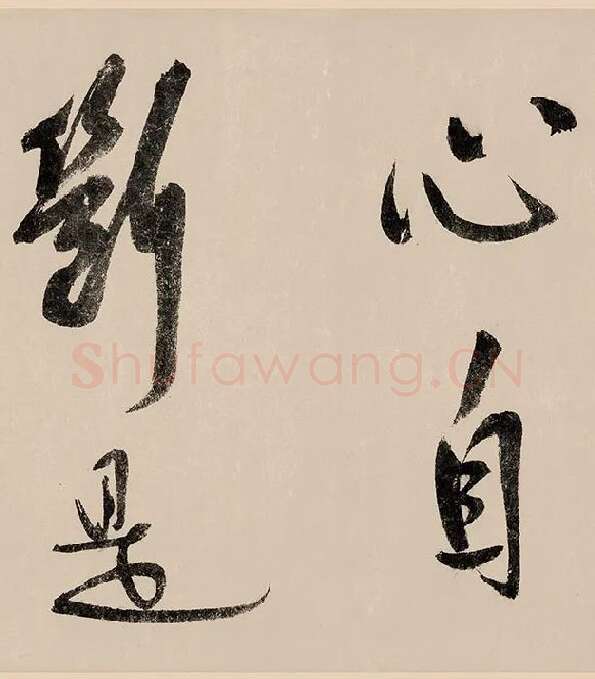 心自
斷是
Shufawang.CN